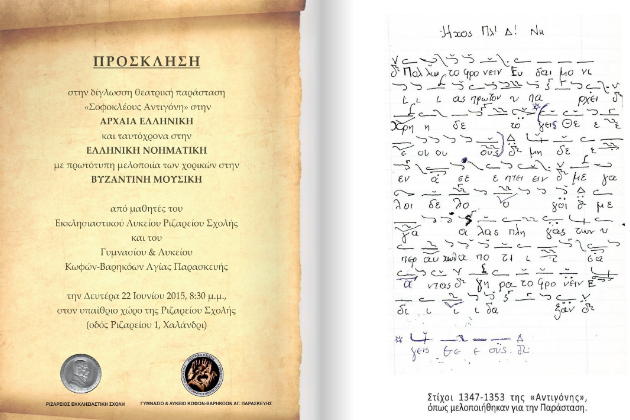 ΠΡΟΣΚΛΗΣΗ
στην δίγλωσση θεατρική παράσταση
«Σοφοκλέους Αντιγόνη» στην
ΑΡΧΑΙΑ ΕΛΛΗΝΙΚΗ
και ταυτόχρονα στην
ΕΛΛΗΝΙΚΗ ΝΟΗΜΑΤΙΚΗ
με πρωτότυπη μελοποιία των χορικών στην
ΒΥΖΑΝΤΙΝΗ ΜΟΥΣΙΚΗ
από μαθητές του
Εκκλησιαστικού Λυκείου Ριζαρείου Σχολής
και του
Γυμνασίου & Λυκείου
Κωφών-Βαρηκόων Αγίας Παρασκευής
την Δευτέρα 22 Ιουνίου 2015, 8:30 μ.μ.,
στον υπαίθριο χώρο της Ριζαρείου Σχολής
(οδός Ριζαρείου 1, Χαλάνδρι)
ΡΙΖΑΡΕΙΟΣ ΕΚΚΛΗΣΙΑΣΤΙΚΗ ΣΧΟΛΗ
ΓΥΜΝΑΣΙΟ & ΛΥΚΕΙΟ ΚΩΦΩΝ-ΒΑΡΗΚΟΩΝ ΑΓ. ΠΑΡΑΣΚΕΥΗΣ
Ήχος Πλ' Δ' Νη
Πολλω το φρο νειν Ευ δαι μο νι
ι ι ας πρωτον υ πα ρχει
Χρη η δε
ε ν α σε ε πτειν δ με γα
λοι δε λο
γοι δ με
γα α λας πλη γας των υ
περ αυχων
γη ρα το φρο νειν Ε
δι ι ι δα ξαν
Στίχοι 1347-1353 της «Αντιγόνης»,
όπως μελοποιήθηκαν για την Παράσταση.